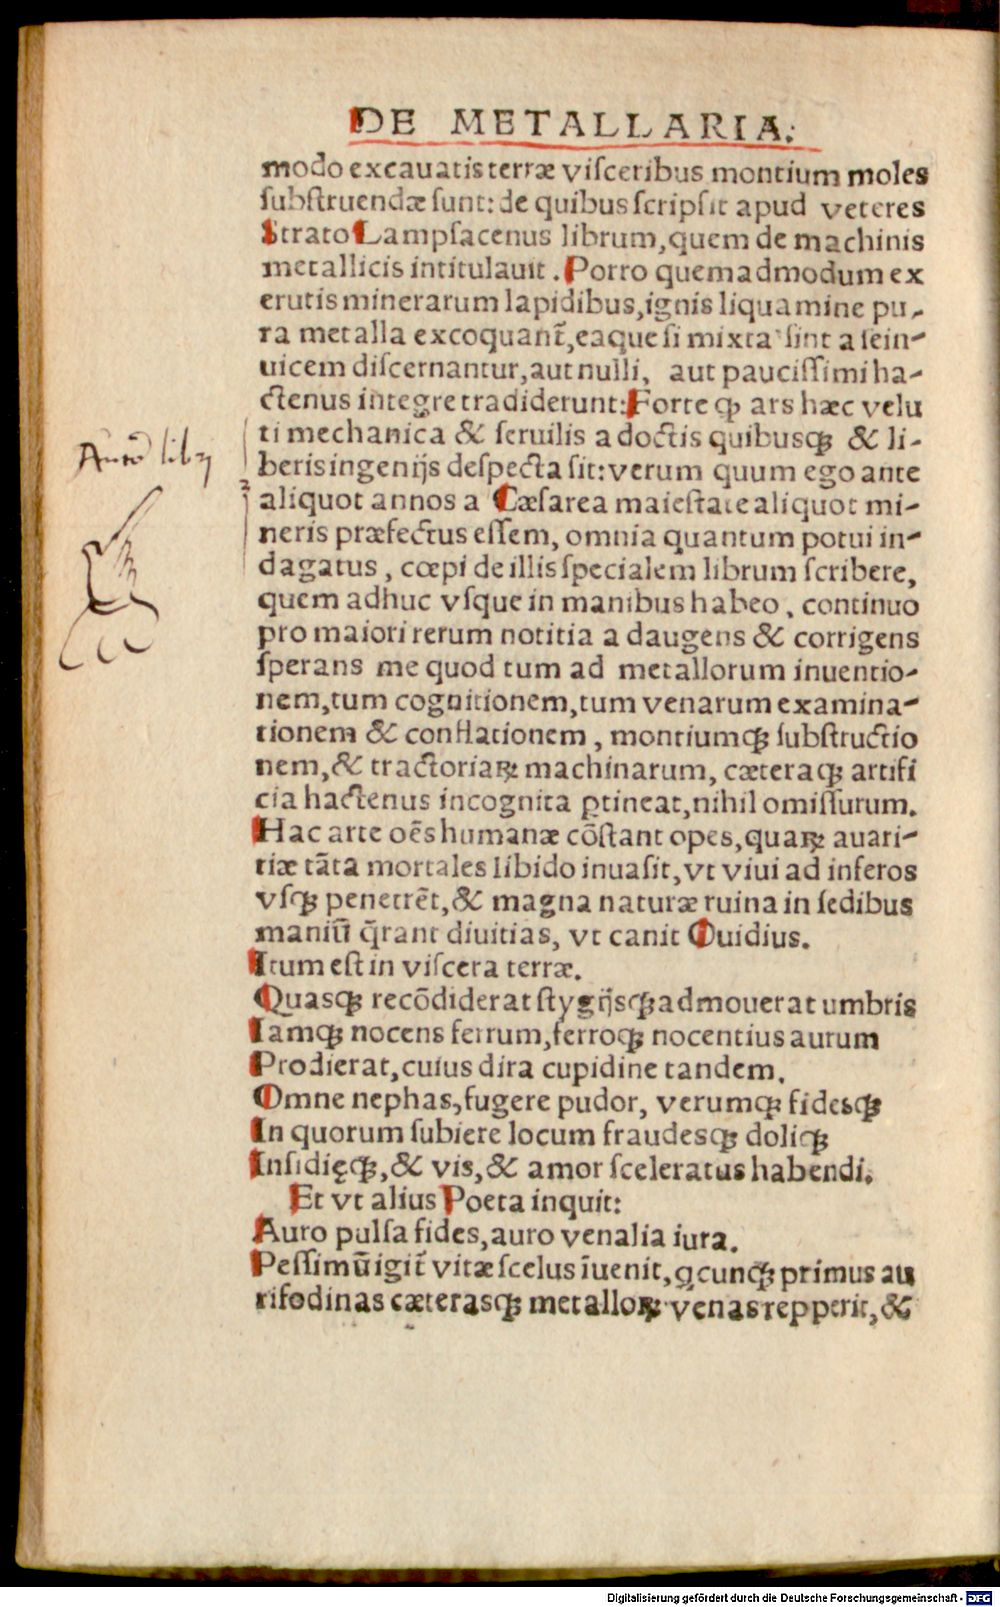 DE METALLARIA.
modo excauatis terræ viſceribus montium moles
ſubſtruendæ ſunt: de quibus ſcripſit apud veteres
Strato Lampſacenus librum, quem de machinis
metallicis intitulauit. Porro quemadmodum ex
erutis minerarum lapidibus, ignis liquamine pu-
ra metalla excoquant᷑, eaque ſi mixta ſint a ſein-
uicem diſcernantur, aut nulli, aut pauciſſimi ha-
ctenus integre tradiderunt: Forte ꝙ ars hæc velu
ti mechanica & ſeruilis a doctis quibusqꝫ & li-
beris ingenijs deſpecta ſit: verum quum ego ante
aliquot annos a Cæſarea maieſtate aliquot mi-
neris præfectus eſſem, omnia quantum potui in-
dagatus, cœpi de illis ſpecialem librum ſcribere,
quem adhuc vſque in manibus habeo, continuo
pro maiori rerum notitia adaugens & corrigens
ſperans me quod tum ad metallorum inuentio-
nem, tum cognitionem, tum venarum examina-
tionem & conflationem, montiumqꝫ ſubſtructio
nem, & tractoriaꝝ machinarum, cæteraqꝫ artifi
cia hactenus incognita ꝑtineat, nihil omiſſurum.
Hac arte oēs humanæ cōſtant opes, quaꝝ auari-
tiæ tāta mortales libido inuaſit, vt viui ad inferos
vſqꝫ penetrēt, & magna naturæ ruina in ſedibus
maniū q̄rant diuitias, vt canit Ouidius.
Itum eſt in viſcera terræ.
Quasqꝫ recōdiderat ſtygijsqꝫ admouerat umbris
Iamqꝫ nocens ferrum, ferroqꝫ nocentius aurum
Prodierat, cuius dira cupidine tandem.
Omne nephas, fugere pudor, verumqꝫ fidesqꝫ
In quorum ſubiere locum fraudesqꝫ doliqꝫ
Inſidięqꝫ, & vis, & amor ſceleratus habendi.
Et vt alius Poeta inquit:
Auro pulſa fides, auro venalia iura.
Peſſimū igit᷑ vitæ ſcelus īuenit, ꝗcunqꝫ primus au
rifodinas cæterasqꝫ metalloꝝ venas repperit, &
Digitalisierung gefördert durch die Deutsche Forschungsgemeinschaft - DFG